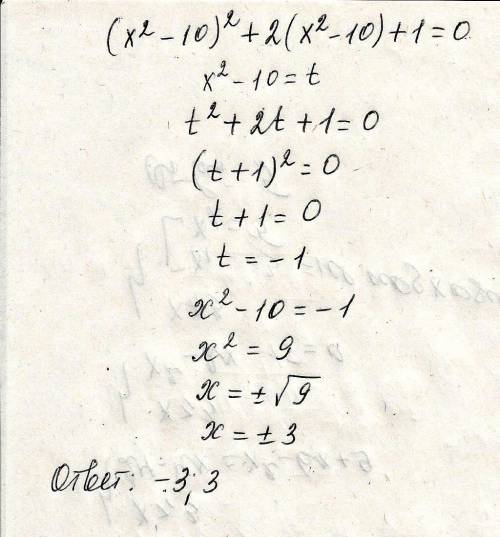 (x² - 10)² + 2(x² - 10) + 1 = 0
x² - 10 = t
t² + 2t + 1 = 0
(t + 1)² = 0
t + 1 = 0
t = - 1
x² - 10 = - 1
x² = 9
x = ± √9
x = ± 3
Ответ: -3, 3